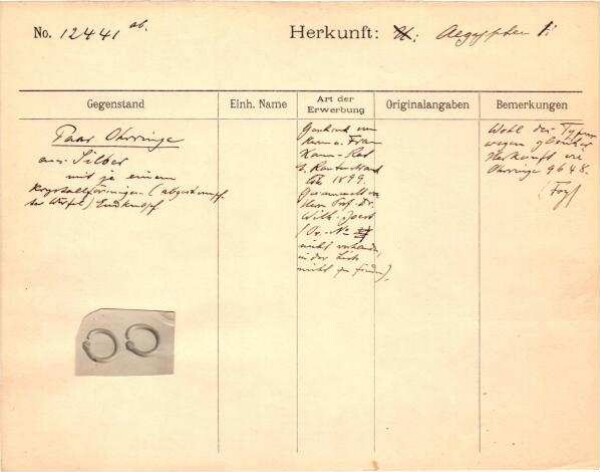 No. 12441 ab.
Herkunft: Aegypten
Gegenstand
Einh. Name
Art der Erwerbung
Originalangaben
Bemerkungen
Paar Ohrringe
aus Silber
mit je einem
krystallförmigen (abgestumpf-
ter Würfel) Endknopf
Geschenk von
Herrn u. Frau
Rautenstrauch
1899.
Gesammelt von
dem Prof. Dr.
Wilh. Joest
(Or.-No
nicht vorhanden,
in der Liste
nicht zu finden).
Wohl der Typus
wegen gleicher
Herkunft wie
Ohrringe 9648.
(Foy)